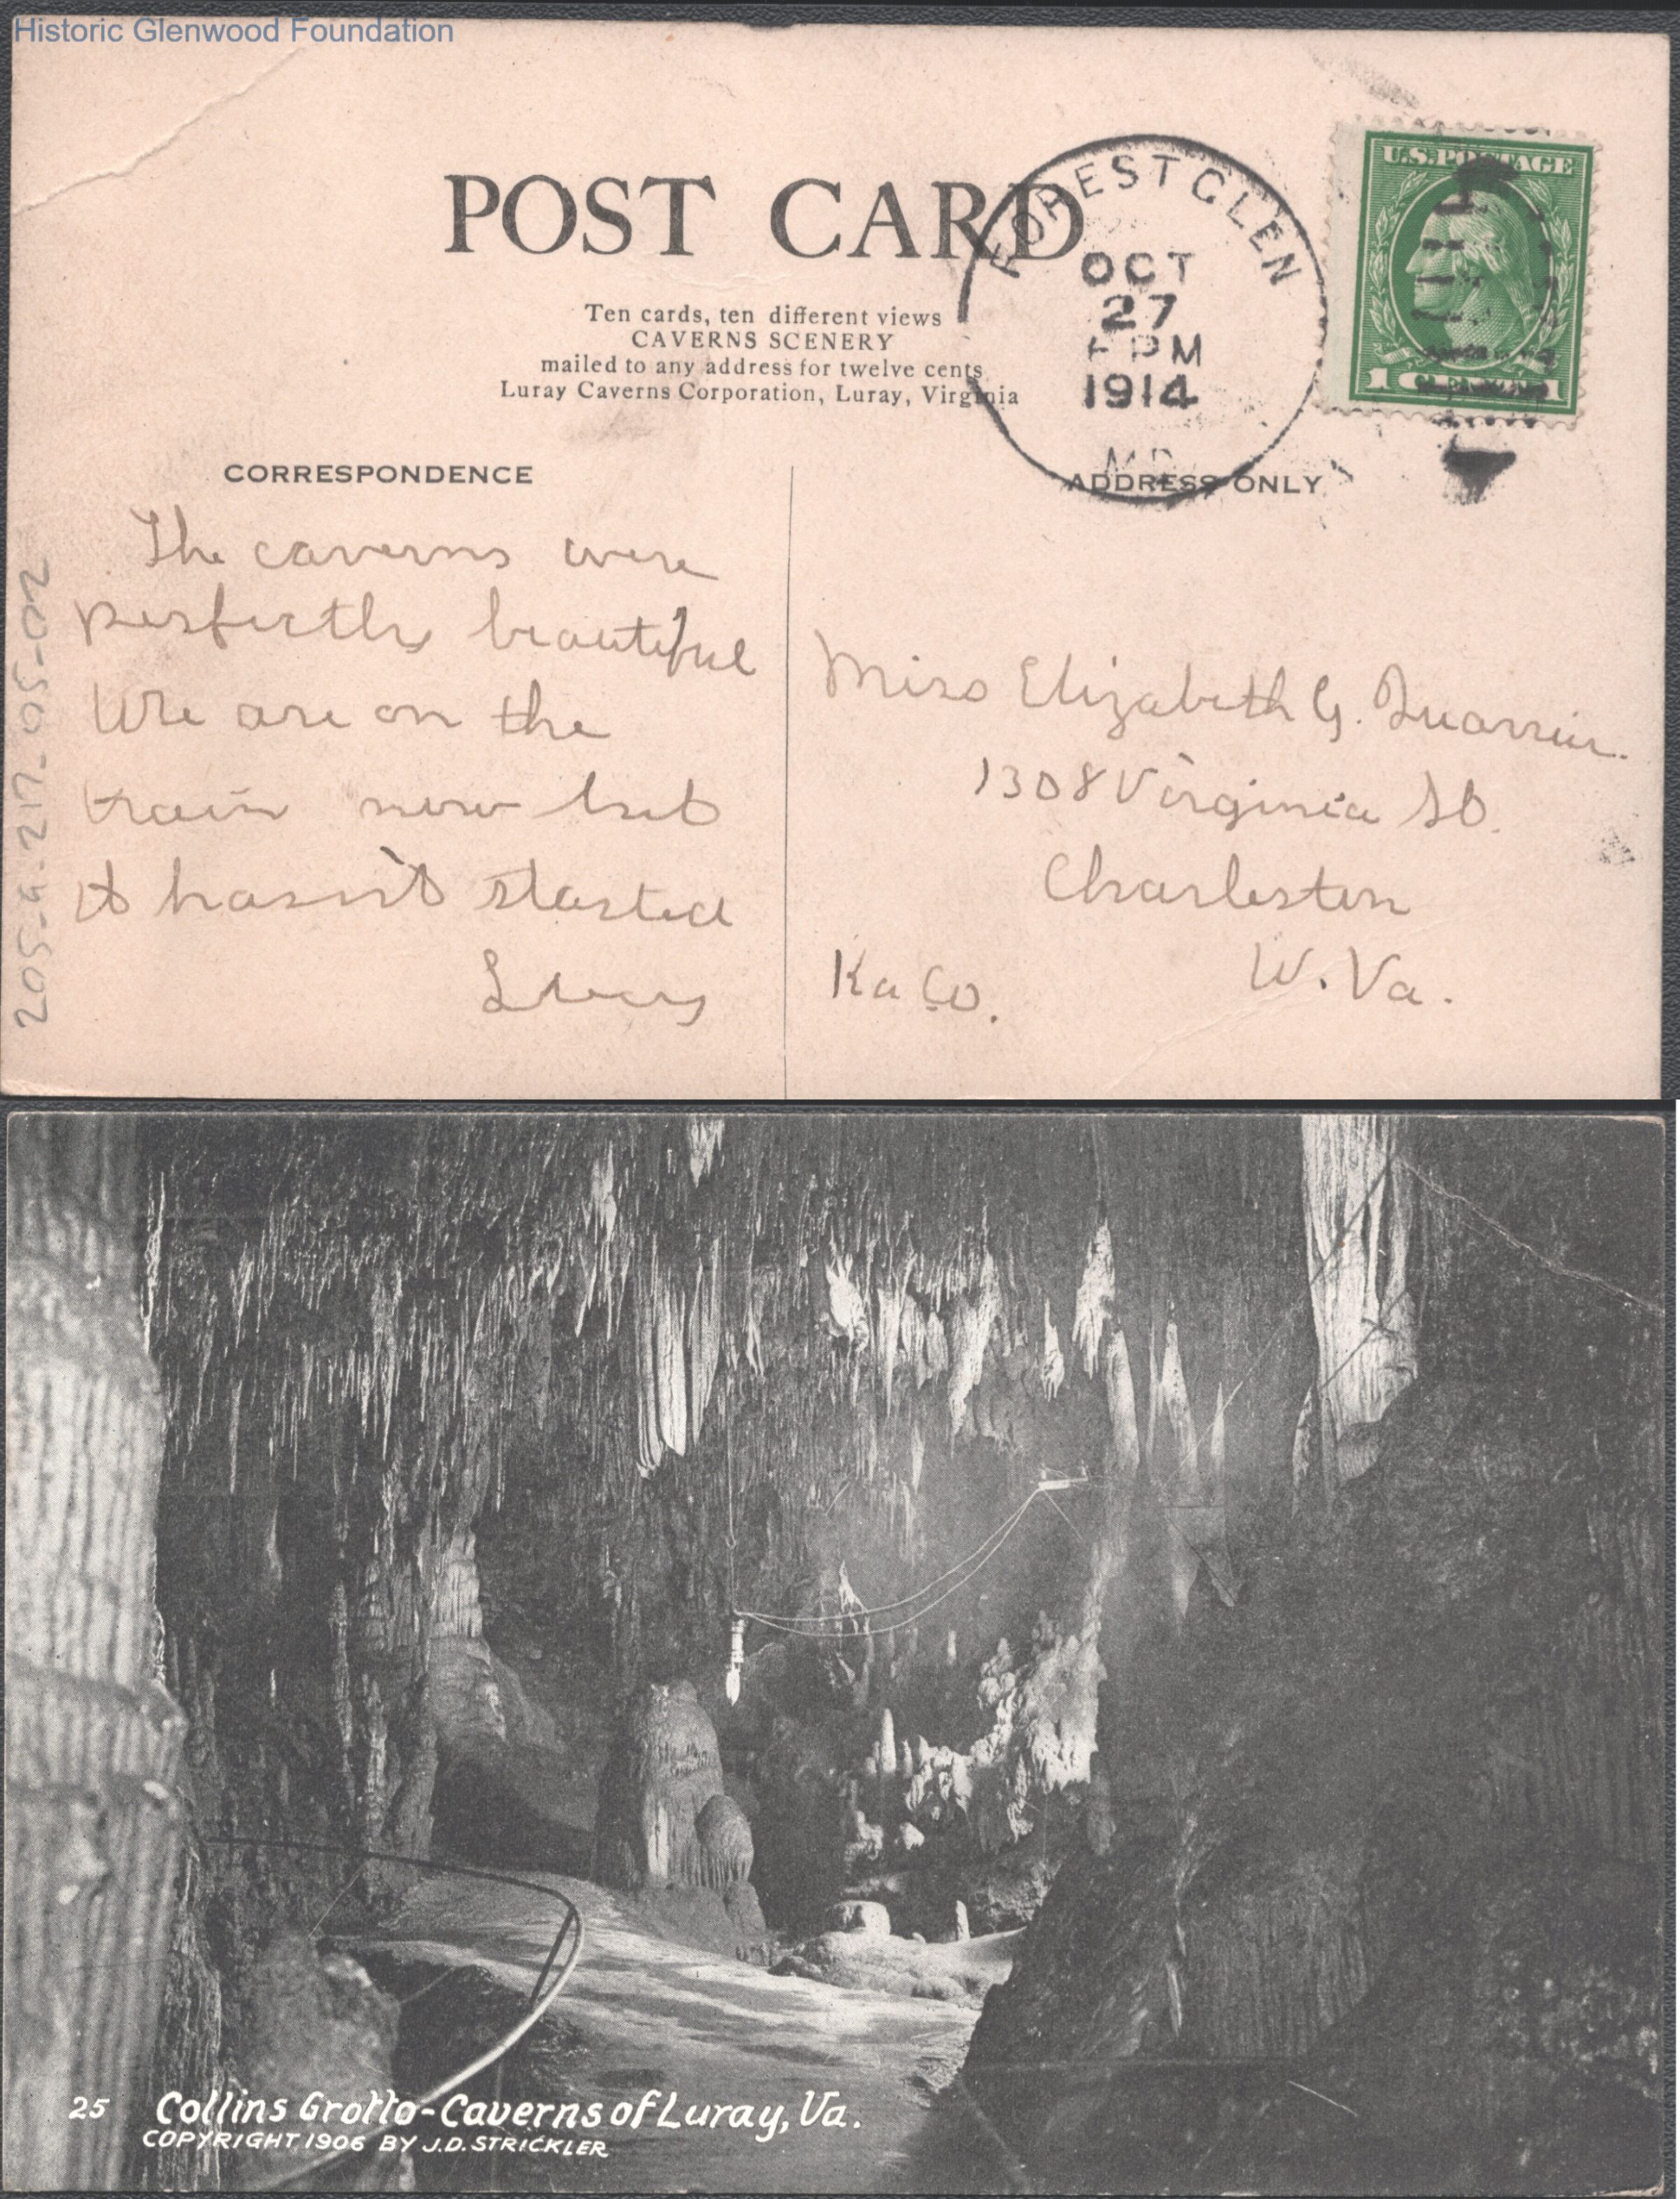 Historic Glenwood Foundation
POST CARD
Ten cards, ten different views
CAVERNS SCENERY
mailed to any address for twelve cents
Luray Caverns Corporation, Luray, Virginia
FOREST GLEN
OCT
27
PM
1914
MD.
U.S. POSTAGE
1 1
CORRESPONDENCE
ADDRESS ONLY
The caverns were
perfectly beautiful
We are on the
train now but
it hasn't started
Lucy
Miss Elizabeth G. Quarrier.
1308 Virginia St.
Charleston
W. Va.
Ka Co.
205-a-217-05-02
25 Collins Grotto-Caverns of Luray, Va.
COPYRIGHT 1906 BY J.D. STRICKLER